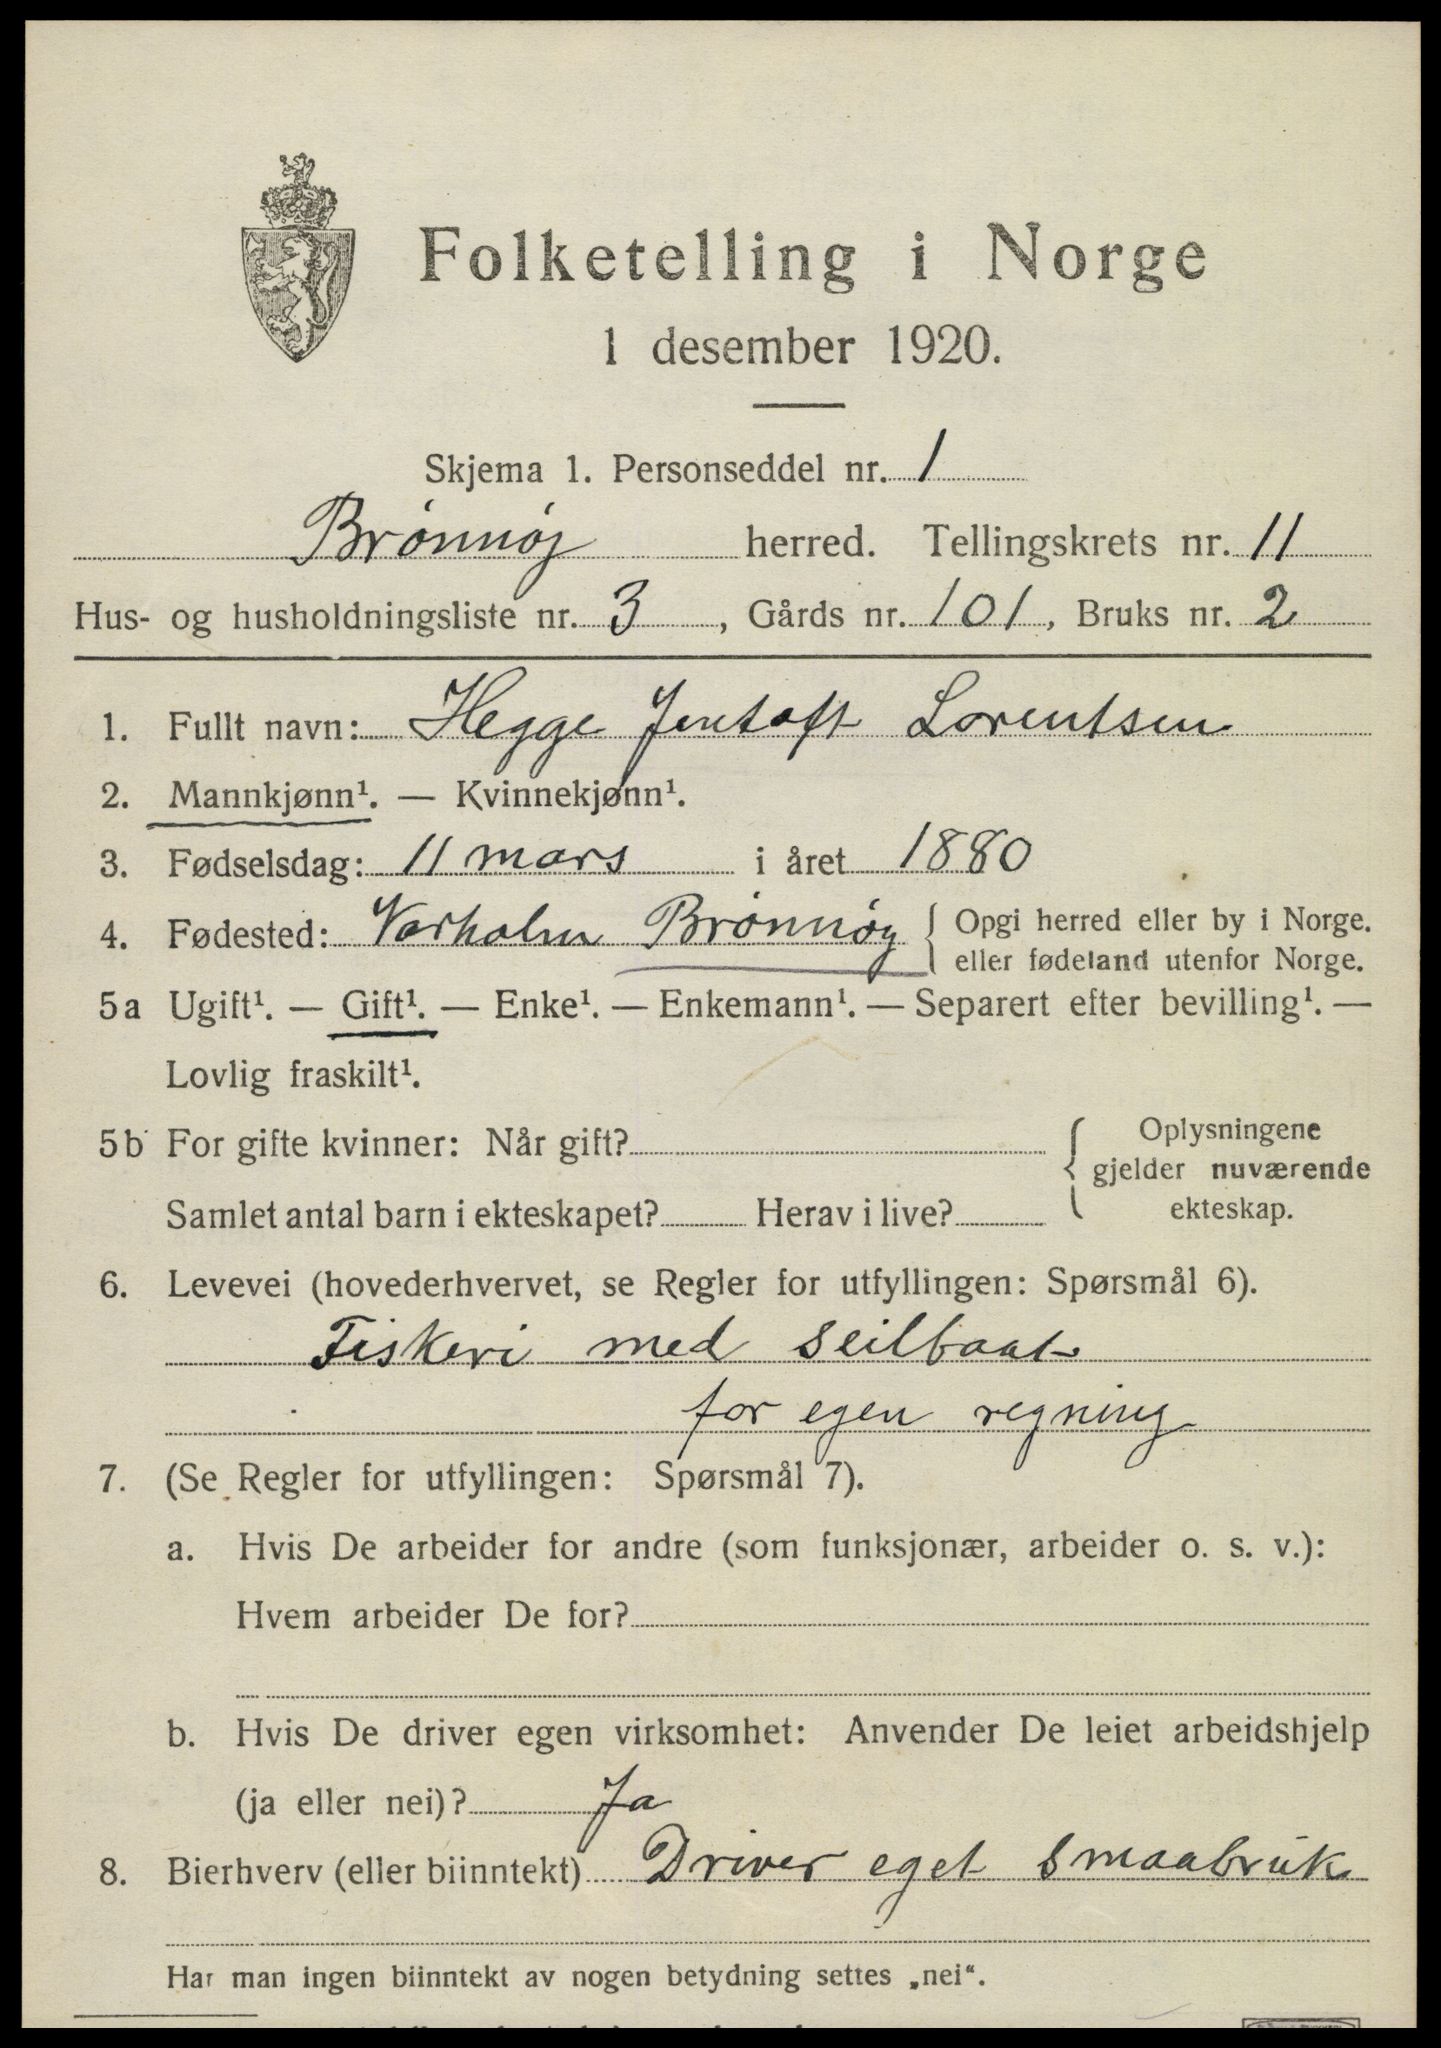 Folketelling i Norge
1 desember 1920.
Skjema 1. Personseddel nr. 1
Brønnøy herred. Tellingskrets nr. 11
Hus- og husholdningsliste nr. 3, Gårds nr. 101, Bruks nr. 2
1. Fullt navn: Hegge Jentoft Lorentsen
2. Mannkjønn¹. — Kvinnekjønn¹.
3. Fødselsdag: 11 mars i året 1880
4. Fødested: Varholm Brønnøy { Opgi herred eller by i Norge.
eller fødeland utenfor Norge.
5a Ugift¹. — Gift¹. — Enke¹. — Enkemann¹. — Separert efter bevilling¹. —
Lovlig fraskilt¹.
5b For gifte kvinner: Når gift?
Samlet antal barn i ekteskapet? Herav i live?
{ Oplysningene
gjelder nuværende
ekteskap.
6. Levevei (hovederhvervet, se Regler for utfyllingen: Spørsmål 6).
Fiskeri med seilbaat
for egen regning
7. (Se Regler for utfyllingen: Spørsmål 7).
a. Hvis De arbeider for andre (som funksjonær, arbeider o. s. v.):
Hvem arbeider De for?
b. Hvis De driver egen virksomhet: Anvender De leiet arbeidshjelp
(ja eller nei)? Ja
8. Bierhverv (eller biinntekt) Driver eget smaabruk
Har man ingen biinntekt av nogen betydning settes „nei“.